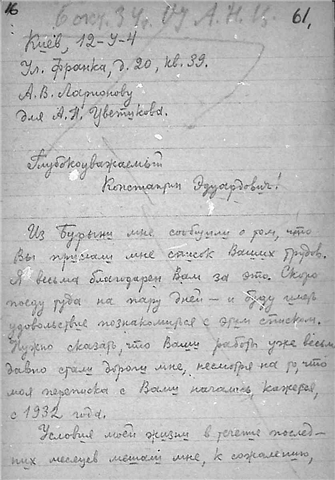 16
6 окт. 34 г.
61,
Киев, 12-У-4
Ул. Франка, д. 20, кв. 39.
А. В. Ларионову
для А. И. Цветикова.
Глубокоуважаемый
Константин Эдуардович!
Из Бурыни мне сообщили о том, что
Вы прислали мне список Ваших трудов.
Я весьма благодарен Вам за это. Скоро
поеду туда на пару дней — и буду иметь
удовольствие познакомиться с этим списком.
Нужно сказать, что Ваши работы уже весьма
давно стали дороги мне, несмотря на то что
моя переписка с Вами началась, кажется,
с 1932 года.
Условия моей жизни в течение послед-
них месяцев мешали мне, к сожалению,